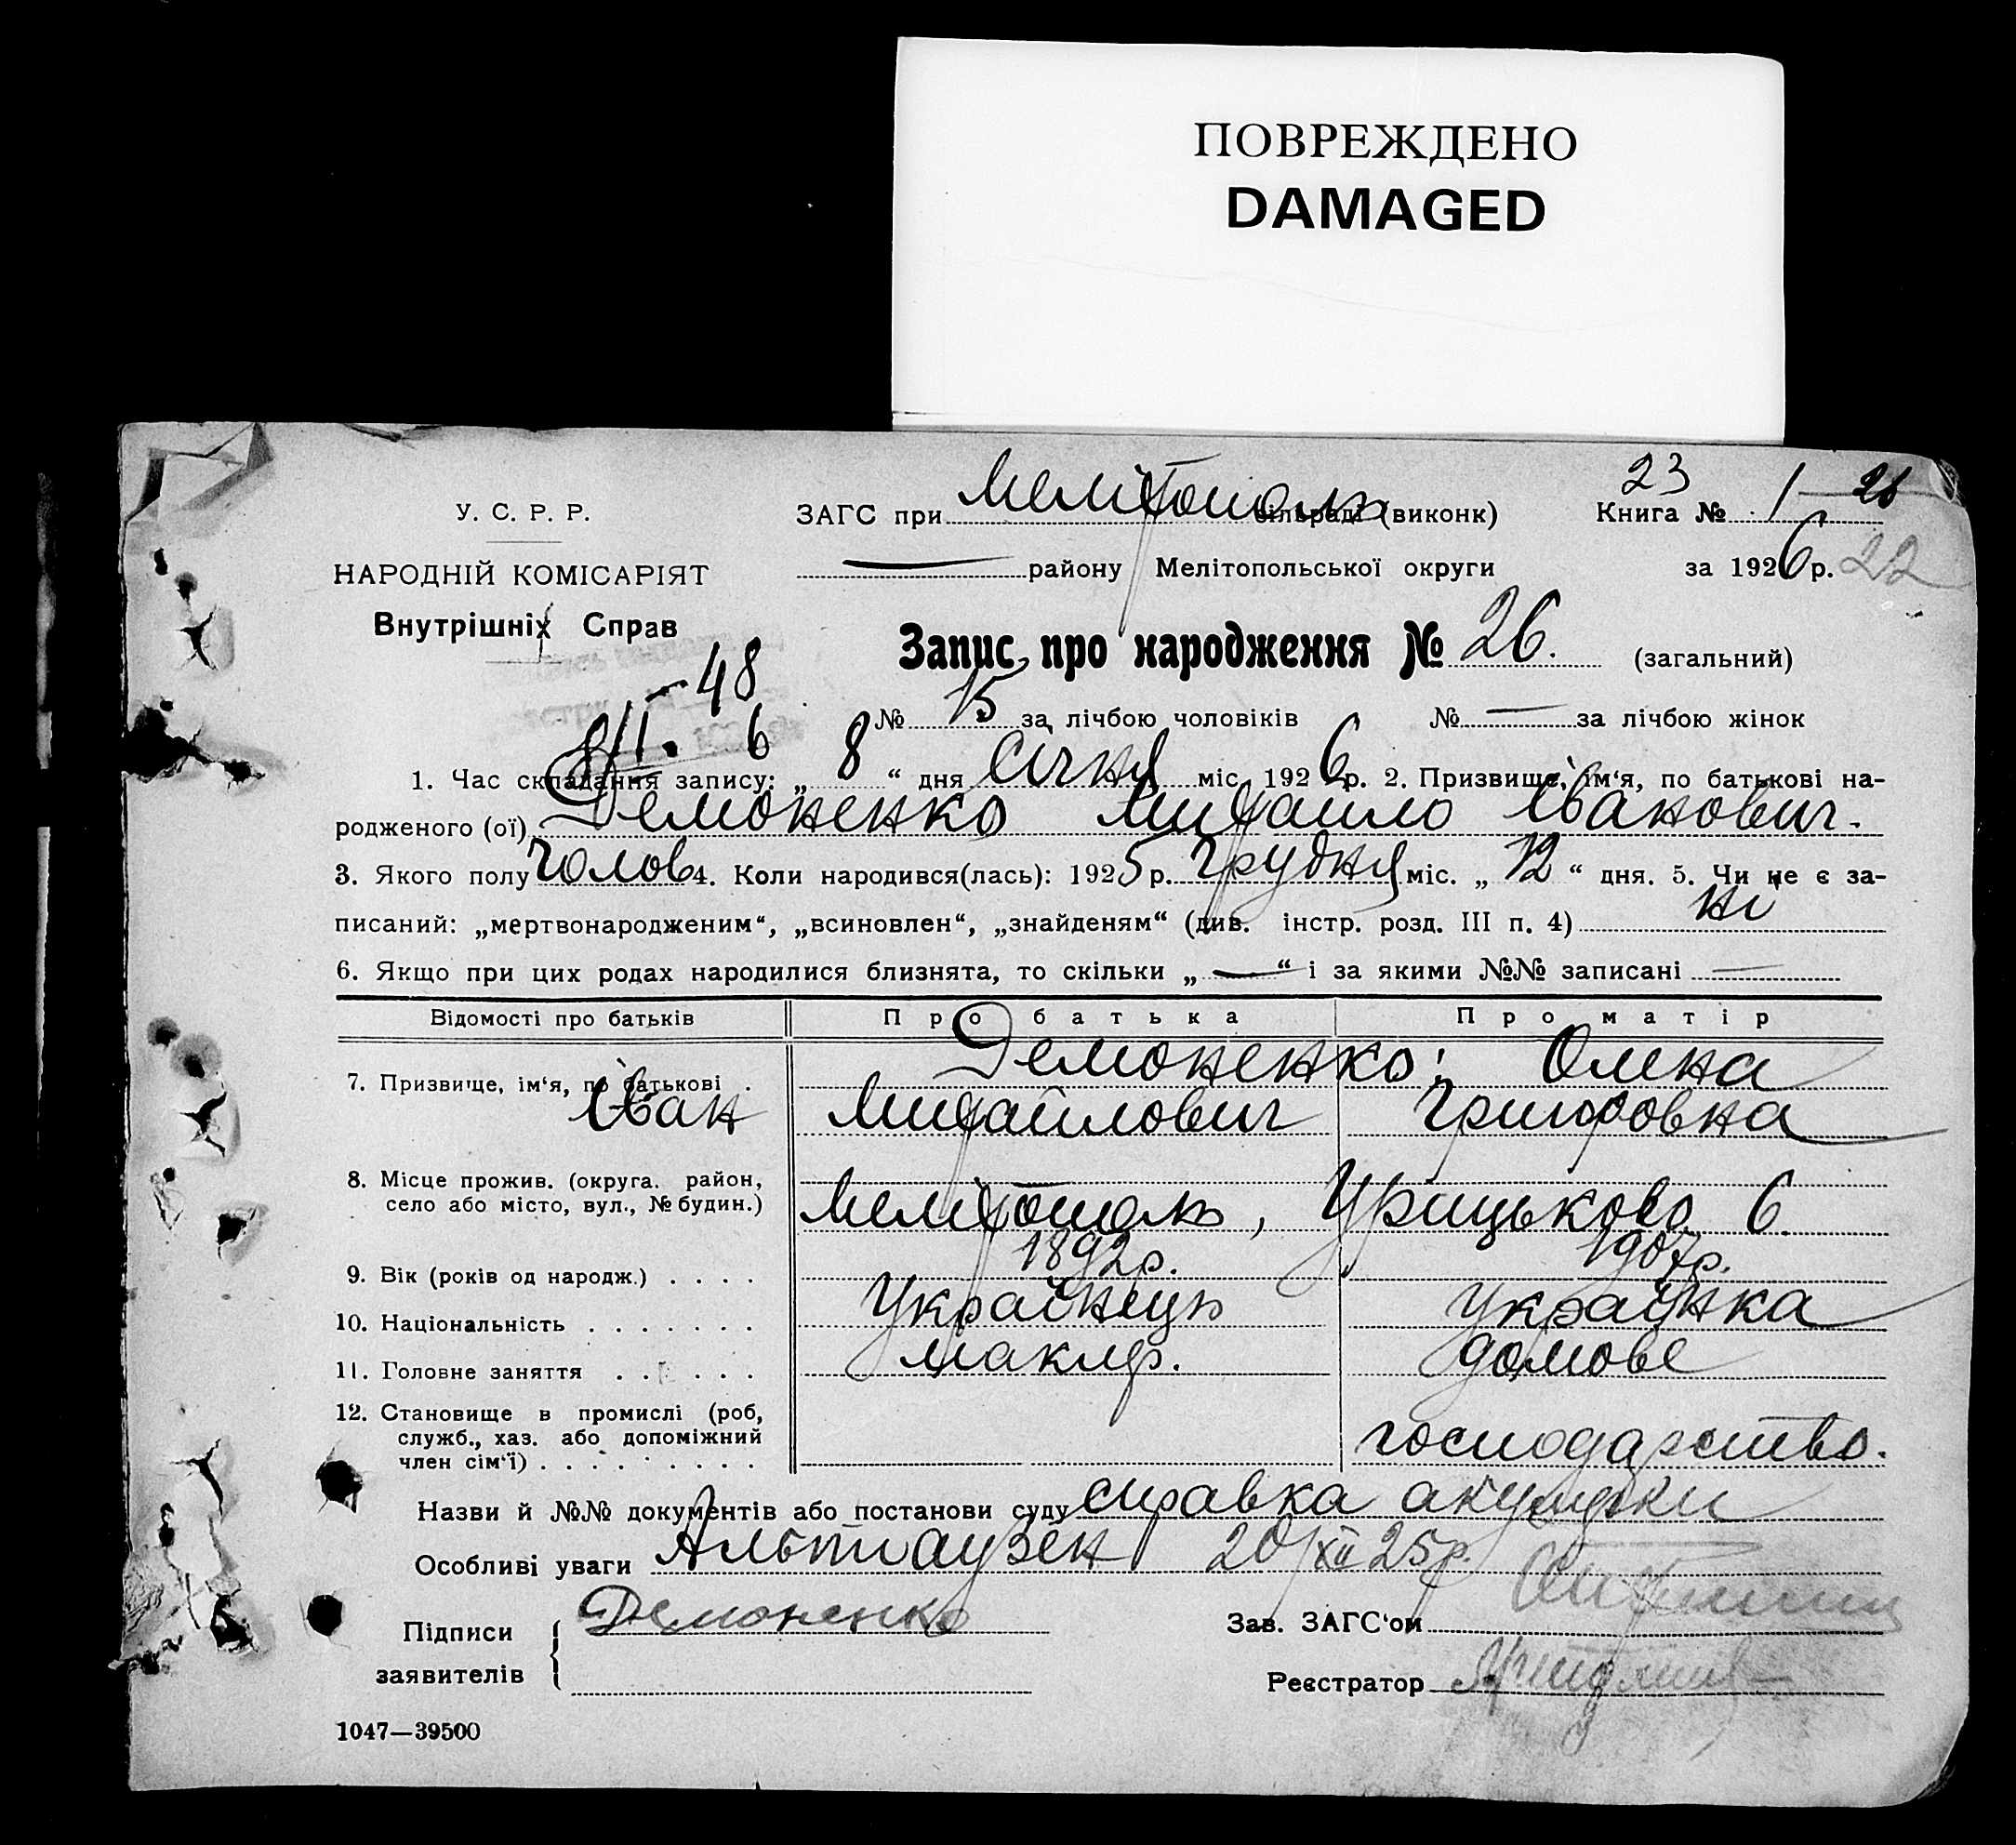 ПОВРЕЖДЕНО
DAMAGED
23
У. С. Р. Р.
ЗАГС при Мелітополь сільраді (виконк) Книга № 1 — 26
НАРОДНІЙ КОМІСАРІЯТ
— району Мелітопольської округи за 1926 р. 22
Внутрішніх Справ
Запис про народження № 26. (загальний)
48
№ 15 за лічбою чоловіків № — за лічбою жінок
8/II. 6
1. Час складання запису: „ 8 “ дня Січня міс. 1926 р. 2. Призвище, ім‘я, по батькові на-
родженого (ої) Демоненко Михайло Іванович.
3. Якого полу Чолов 4. Коли народився(лась): 1925 р. Грудня міс. „ 12 “ дня. 5. Чи не є за-
писаний: „мертвонародженим“, „всиновлен“, „знайденям“ (див. інстр. розд. III п. 4) ні
6. Якщо при цих родах народилися близнята, то скільки „ — “ і за якими №№ записані —
Відомості про батьків Про батька Про матір
7. Призвище, ім‘я, по батькові . Демоненко: Олена
Іван Михайлович Григоровна
8. Місце прожив. (округа. район,
село або місто, вул., № будин.) Мелітополь, Урицького 6.
9. Вік (років од народж.) . . . . 1892 р. 1907 р.
10. Національність . . . . . . . Українець Українка
11. Головне заняття . . . . . . маклер. домове
12. Становище в промислі (роб,
служб., хаз. або допоміжний
член сім‘ї) . . . . . . . . . господарство.
Назви й №№ документів або постанови суду справка акушерки
Особливі уваги Альтгаузен 20/XII 25 р.
Підписи Демоненко
Зав. ЗАГС‘ом
заявителів
Реєстратор
1047—39500